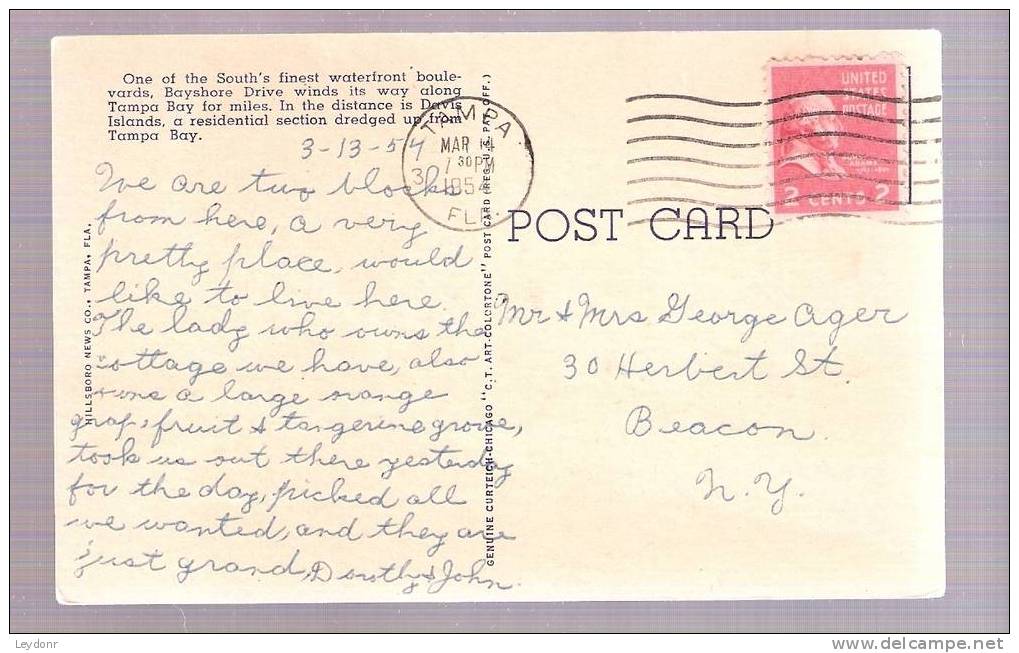 One of the South's finest waterfront boule-
vards, Bayshore Drive winds its way along
Tampa Bay for miles. In the distance is Davis
Islands, a residential section dredged up from
Tampa Bay.
3-13-54
We are two blocks
from here, a very
pretty place, would
like to live here.
The lady who owns the
cottage we have, also
owns a large orange
grapefruit & tangerine grove,
took us out there yesterday
for the day, picked all
we wanted, and they are
just grand, Dorothy & John.
HILLSBORO NEWS CO., TAMPA, FLA.
GENUINE CURTEICH-CHICAGO "C.T. ART-COLORTONE" POST CARD (REG. U.S. PAT. OFF.)
TAMPA
MAR 14
7 30 PM
1954
FLA.
3
UNITED
STATES
POSTAGE
ADAMS
2 CENTS 2
POST CARD
Mr & Mrs George Ager
30 Herbert St.
Beacon.
N.Y.
Leydonr
www.delcampe.net